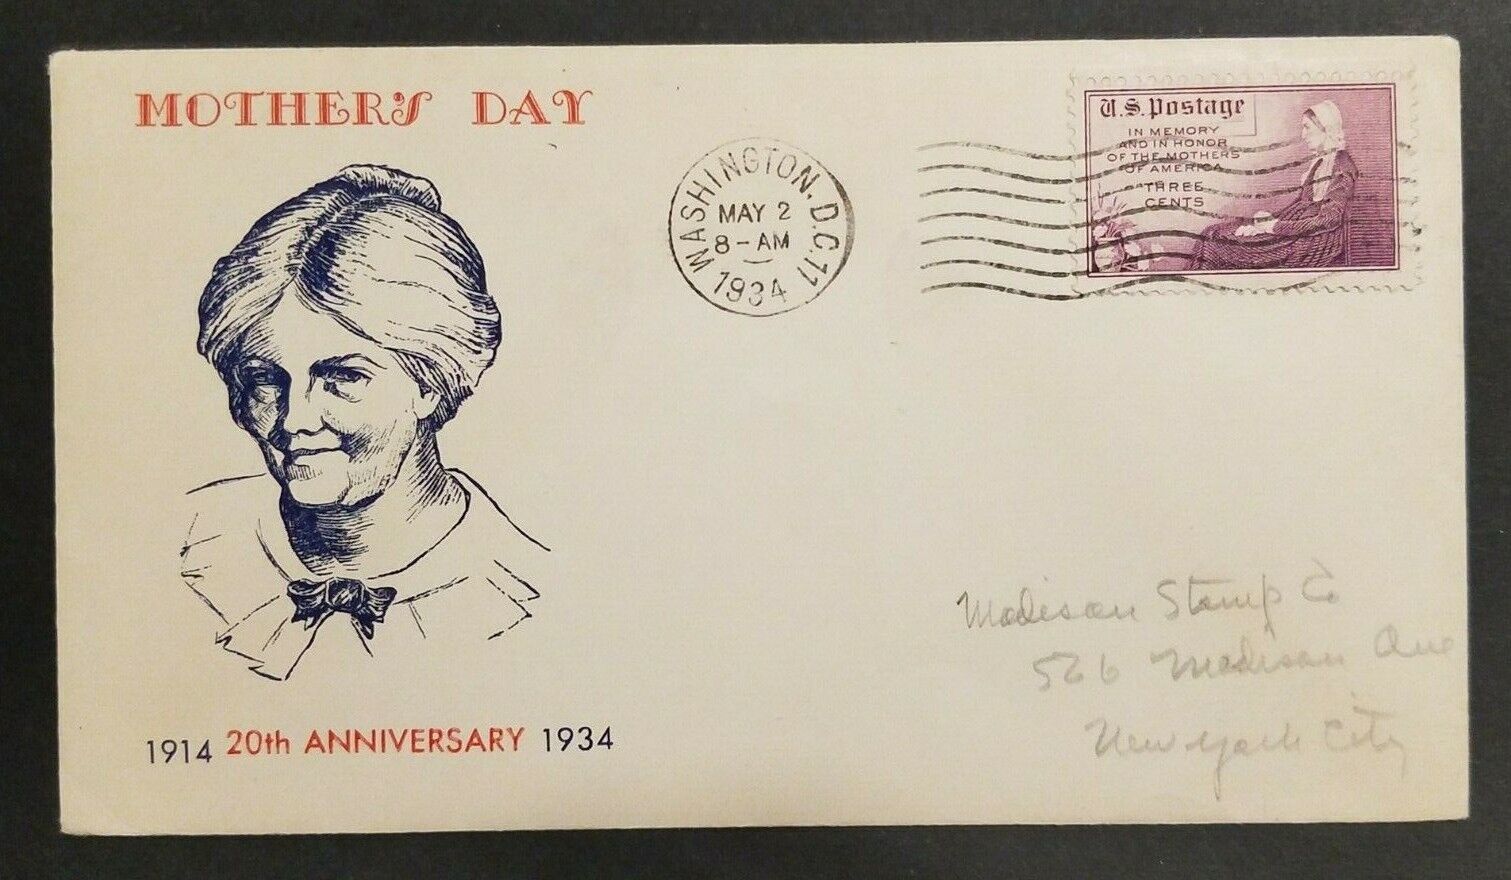 MOTHER'S DAY
WASHINGTON, D.C. 11
MAY 2
8-AM
1934
U.S. Postage
IN MEMORY
AND IN HONOR
OF THE MOTHERS
OF AMERICA
THREE
CENTS
Madison Stamp Co
526 Madison Ave
New York City
1914 20th ANNIVERSARY 1934